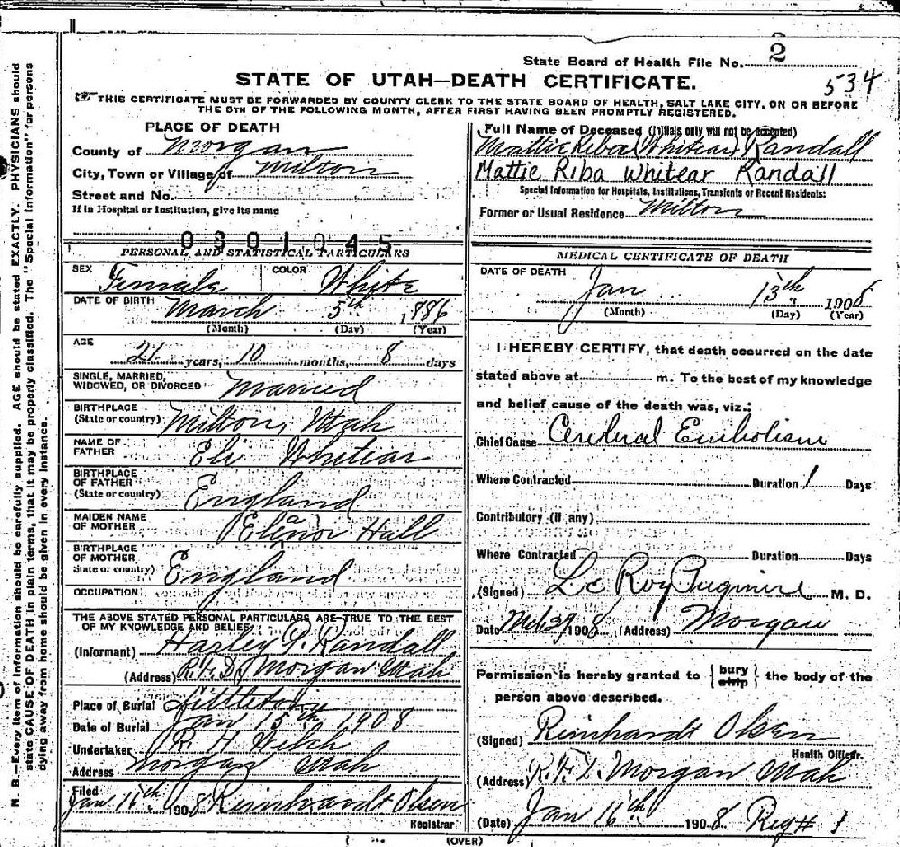 State Board of Health File No. 2
534
STATE OF UTAH—DEATH CERTIFICATE.
THIS CERTIFICATE MUST BE FORWARDED BY COUNTY CLERK TO THE STATE BOARD OF HEALTH, SALT LAKE CITY, ON OR BEFORE
THE 5TH OF THE FOLLOWING MONTH, AFTER FIRST HAVING BEEN PROMPTLY REGISTERED.
PLACE OF DEATH
County of Morgan
City, Town or Village of Milton
Street and No.
If in Hospital or Institution, give its name
0801045
PERSONAL AND STATISTICAL PARTICULARS
SEX Female COLOR White
DATE OF BIRTH March 5th 1886
(Month) (Day) (Year)
AGE 21 years, 10 months, 8 days
SINGLE, MARRIED,
WIDOWED, OR DIVORCED Married
BIRTHPLACE
(State or country) Milton, Utah
NAME OF
FATHER Eli Whitear
BIRTHPLACE
OF FATHER
(State or country) England
MAIDEN NAME
OF MOTHER Elenor Hall
BIRTHPLACE
OF MOTHER
State or country) England
OCCUPATION
THE ABOVE STATED PERSONAL PARTICULARS ARE TRUE TO THE BEST
OF MY KNOWLEDGE AND BELIEF
(Informant) Harley Randall
(Address) R.F.D. Morgan Utah
Place of Burial Littleton
Date of Burial Jan 15th 1908
Undertaker R. H. Welch
Address Morgan Utah
Filed
Jan 16th 1908 Reinhardt Olsen
Registrar
Full Name of Deceased (Initials only will not be accepted)
Mattie Riba Whitear Randall
Mattie Riba Whitear Randall
Special Information for Hospitals, Institutions, Transients or Recent Residents:
Former or Usual Residence Milton
MEDICAL CERTIFICATE OF DEATH
DATE OF DEATH
Jan 13th 1908
(Month) (Day) (Year)
I HEREBY CERTIFY, that death occurred on the date
stated above at m. To the best of my knowledge
and belief cause of the death was, viz.:
Chief Cause Cerebral Embolism
Where Contracted Duration 1 Days
Contributory (if any)
Where Contracted Duration Days
(Signed) Le Roy Pugmire M. D.
Date 1908 (Address) Morgan
Permission is hereby granted to { bury ship } the body of the
person above described.
(Signed) Reinhardt Olsen
Health Officer.
(Address) R.F.D. Morgan Utah
(Date) Jan 16th 1908 Reg # 1
(OVER)
N. B.—Every item of information should be carefully supplied. AGE should be stated EXACTLY. PHYSICIANS should
state CAUSE OF DEATH in plain terms, that it may be properly classified. The "Special Information" for persons
dying away from home should be given in every instance.